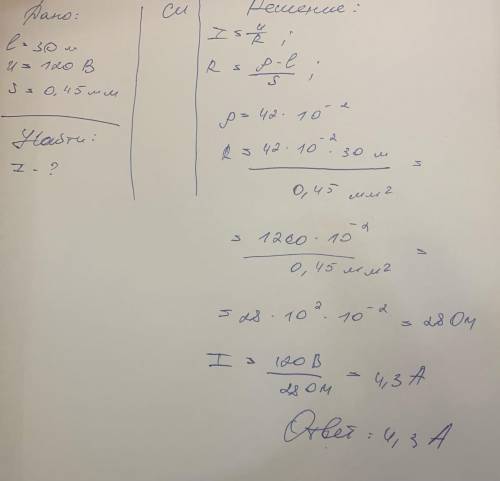 Дано:
l = 30 м
u = 120 В
S = 0,45 мм
Найти:
I - ?
СИ
Решение:
I = u/R ;
R = ρ·l/S ;
ρ = 42 · 10⁻²
R = 42 · 10⁻² · 30 м / 0,45 мм² =
= 1260 · 10⁻² / 0,45 мм² =
= 28 · 10² · 10⁻² = 28 Ом
I = 120 В / 28 Ом = 4,3 А
Ответ: 4,3 А